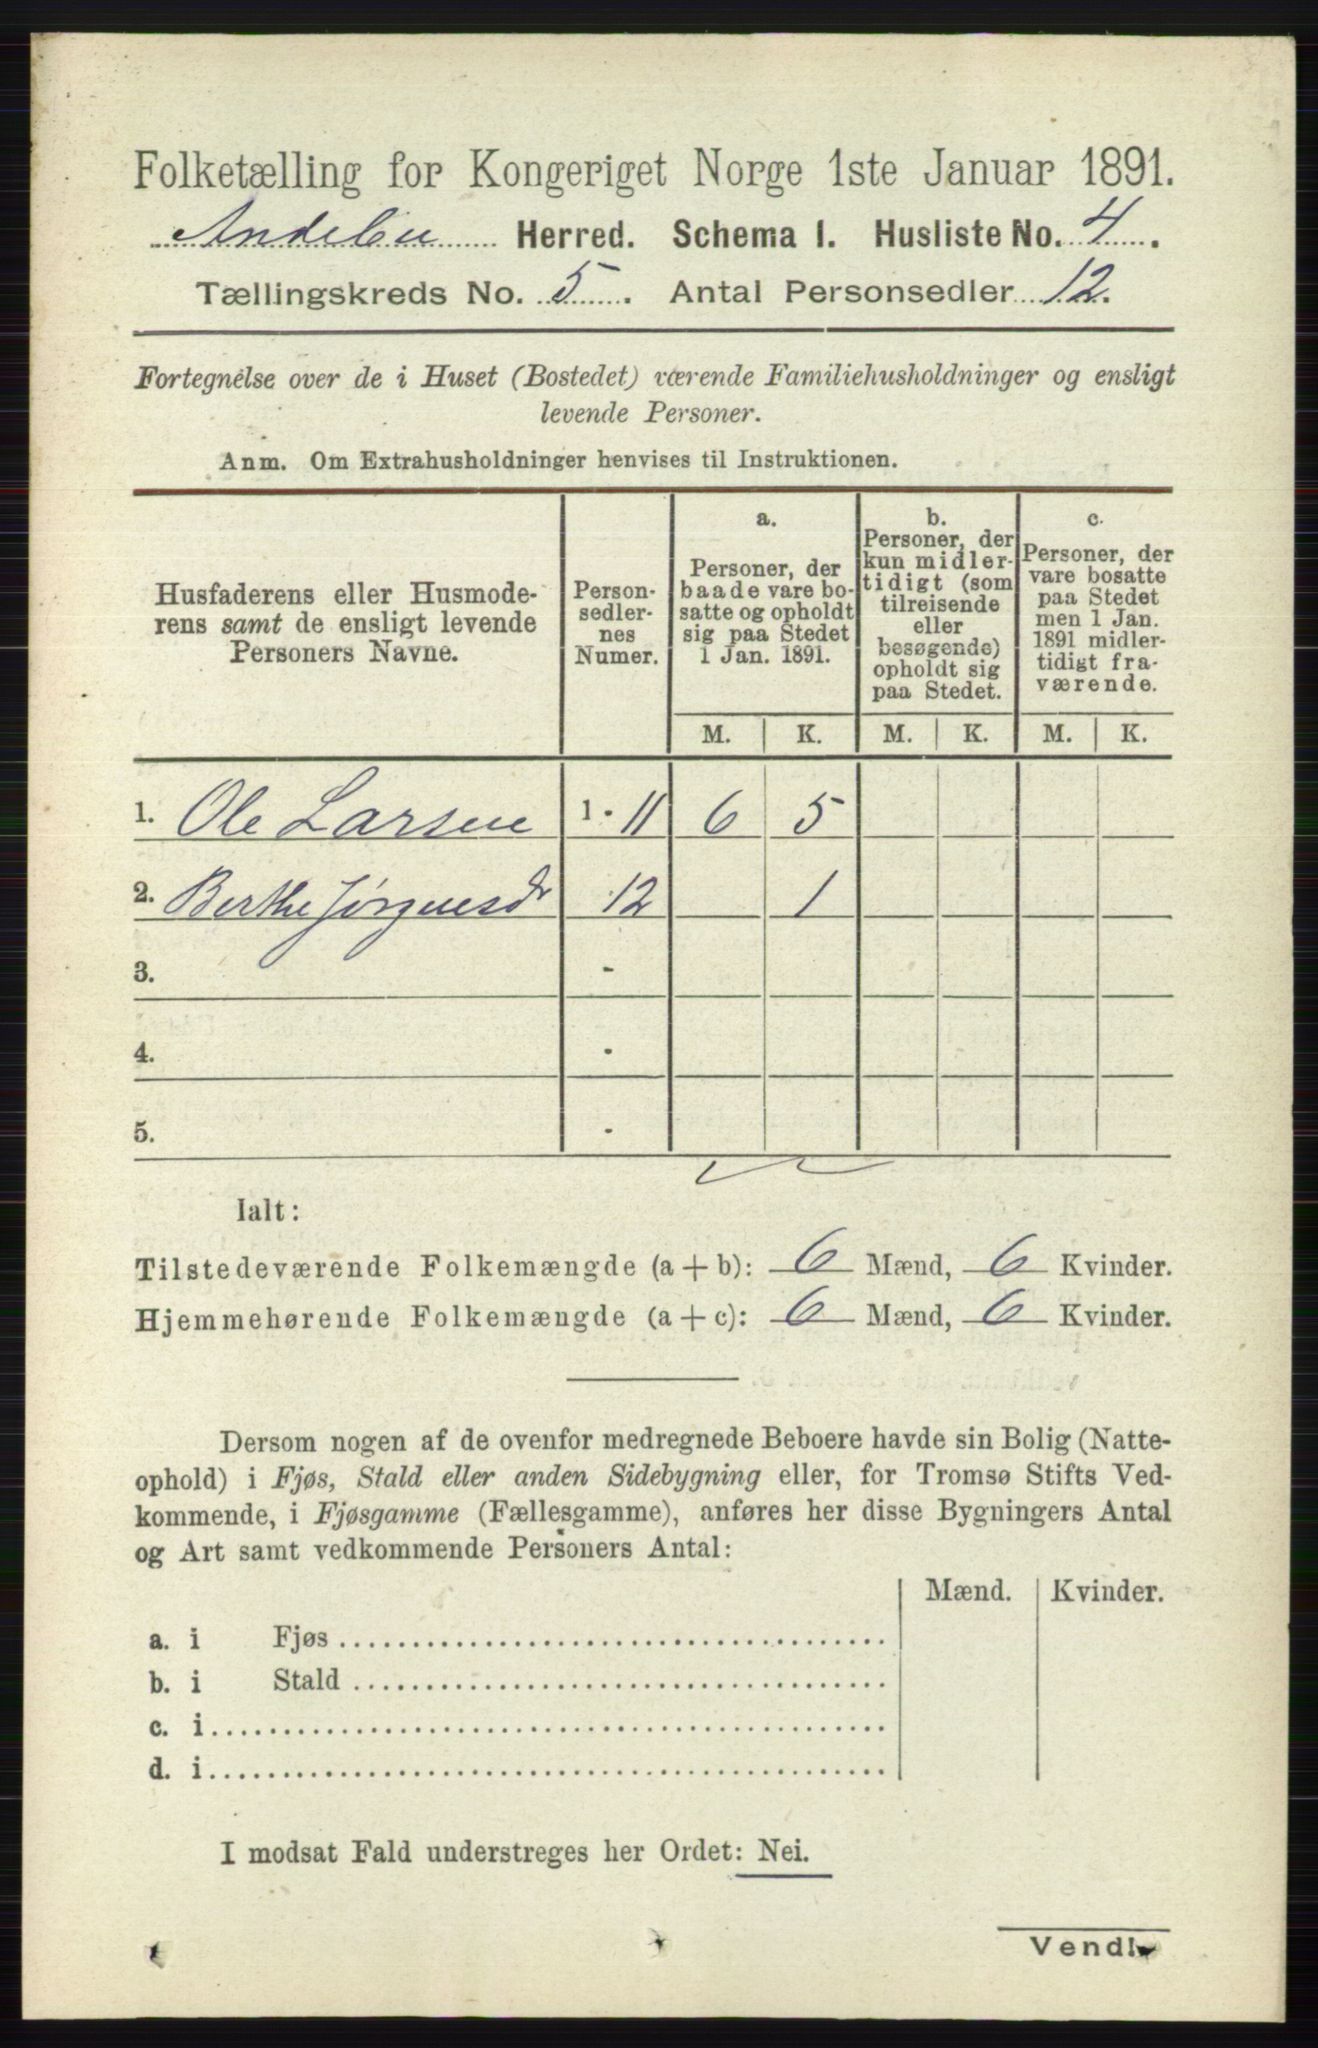 Folketælling for Kongeriget Norge 1ste Januar 1891.
Andebu Herred. Schema I. Husliste No. 4.
Tællingskreds No. 5. Antal Personsedler 12.
Fortegnelse over de i Huset (Bostedet) værende Familiehusholdninger og ensligt
levende Personer.
Anm. Om Extrahusholdninger henvises til Instruktionen.
Husfaderens eller Husmode-
rens samt de ensligt levende
Personers Navne.
Person-
sedler-
nes
Numer.
a.
Personer, der
baade vare bo-
satte og opholdt
sig paa Stedet
1 Jan. 1891.
b.
Personer, der
kun midler-
tidigt (som
tilreisende
eller
besøgende)
opholdt sig
paa Stedet.
c.
Personer, der
vare bosatte
paa Stedet
men 1 Jan.
1891 midler-
tidigt fra-
værende.
M. K. M. K. M. K.
1. Ole Larsen 1 - 11 6 5
2. Berthe Jørgensd 12 1
3. -
4. -
5. -
Ialt:
Tilstedeværende Folkemængde (a + b): 6 Mænd, 6 Kvinder.
Hjemmehørende Folkemængde (a + c): 6 Mænd, 6 Kvinder.
Dersom nogen af de ovenfor medregnede Beboere havde sin Bolig (Natte-
ophold) i Fjøs, Stald eller anden Sidebygning eller, for Tromsø Stifts Ved-
kommende, i Fjøsgamme (Fællesgamme), anføres her disse Bygningers Antal
og Art samt vedkommende Personers Antal:
Mænd. Kvinder.
a. i Fjøs
b. i Stald
c. i
d. i
I modsat Fald understreges her Ordet: Nei.
Vend!